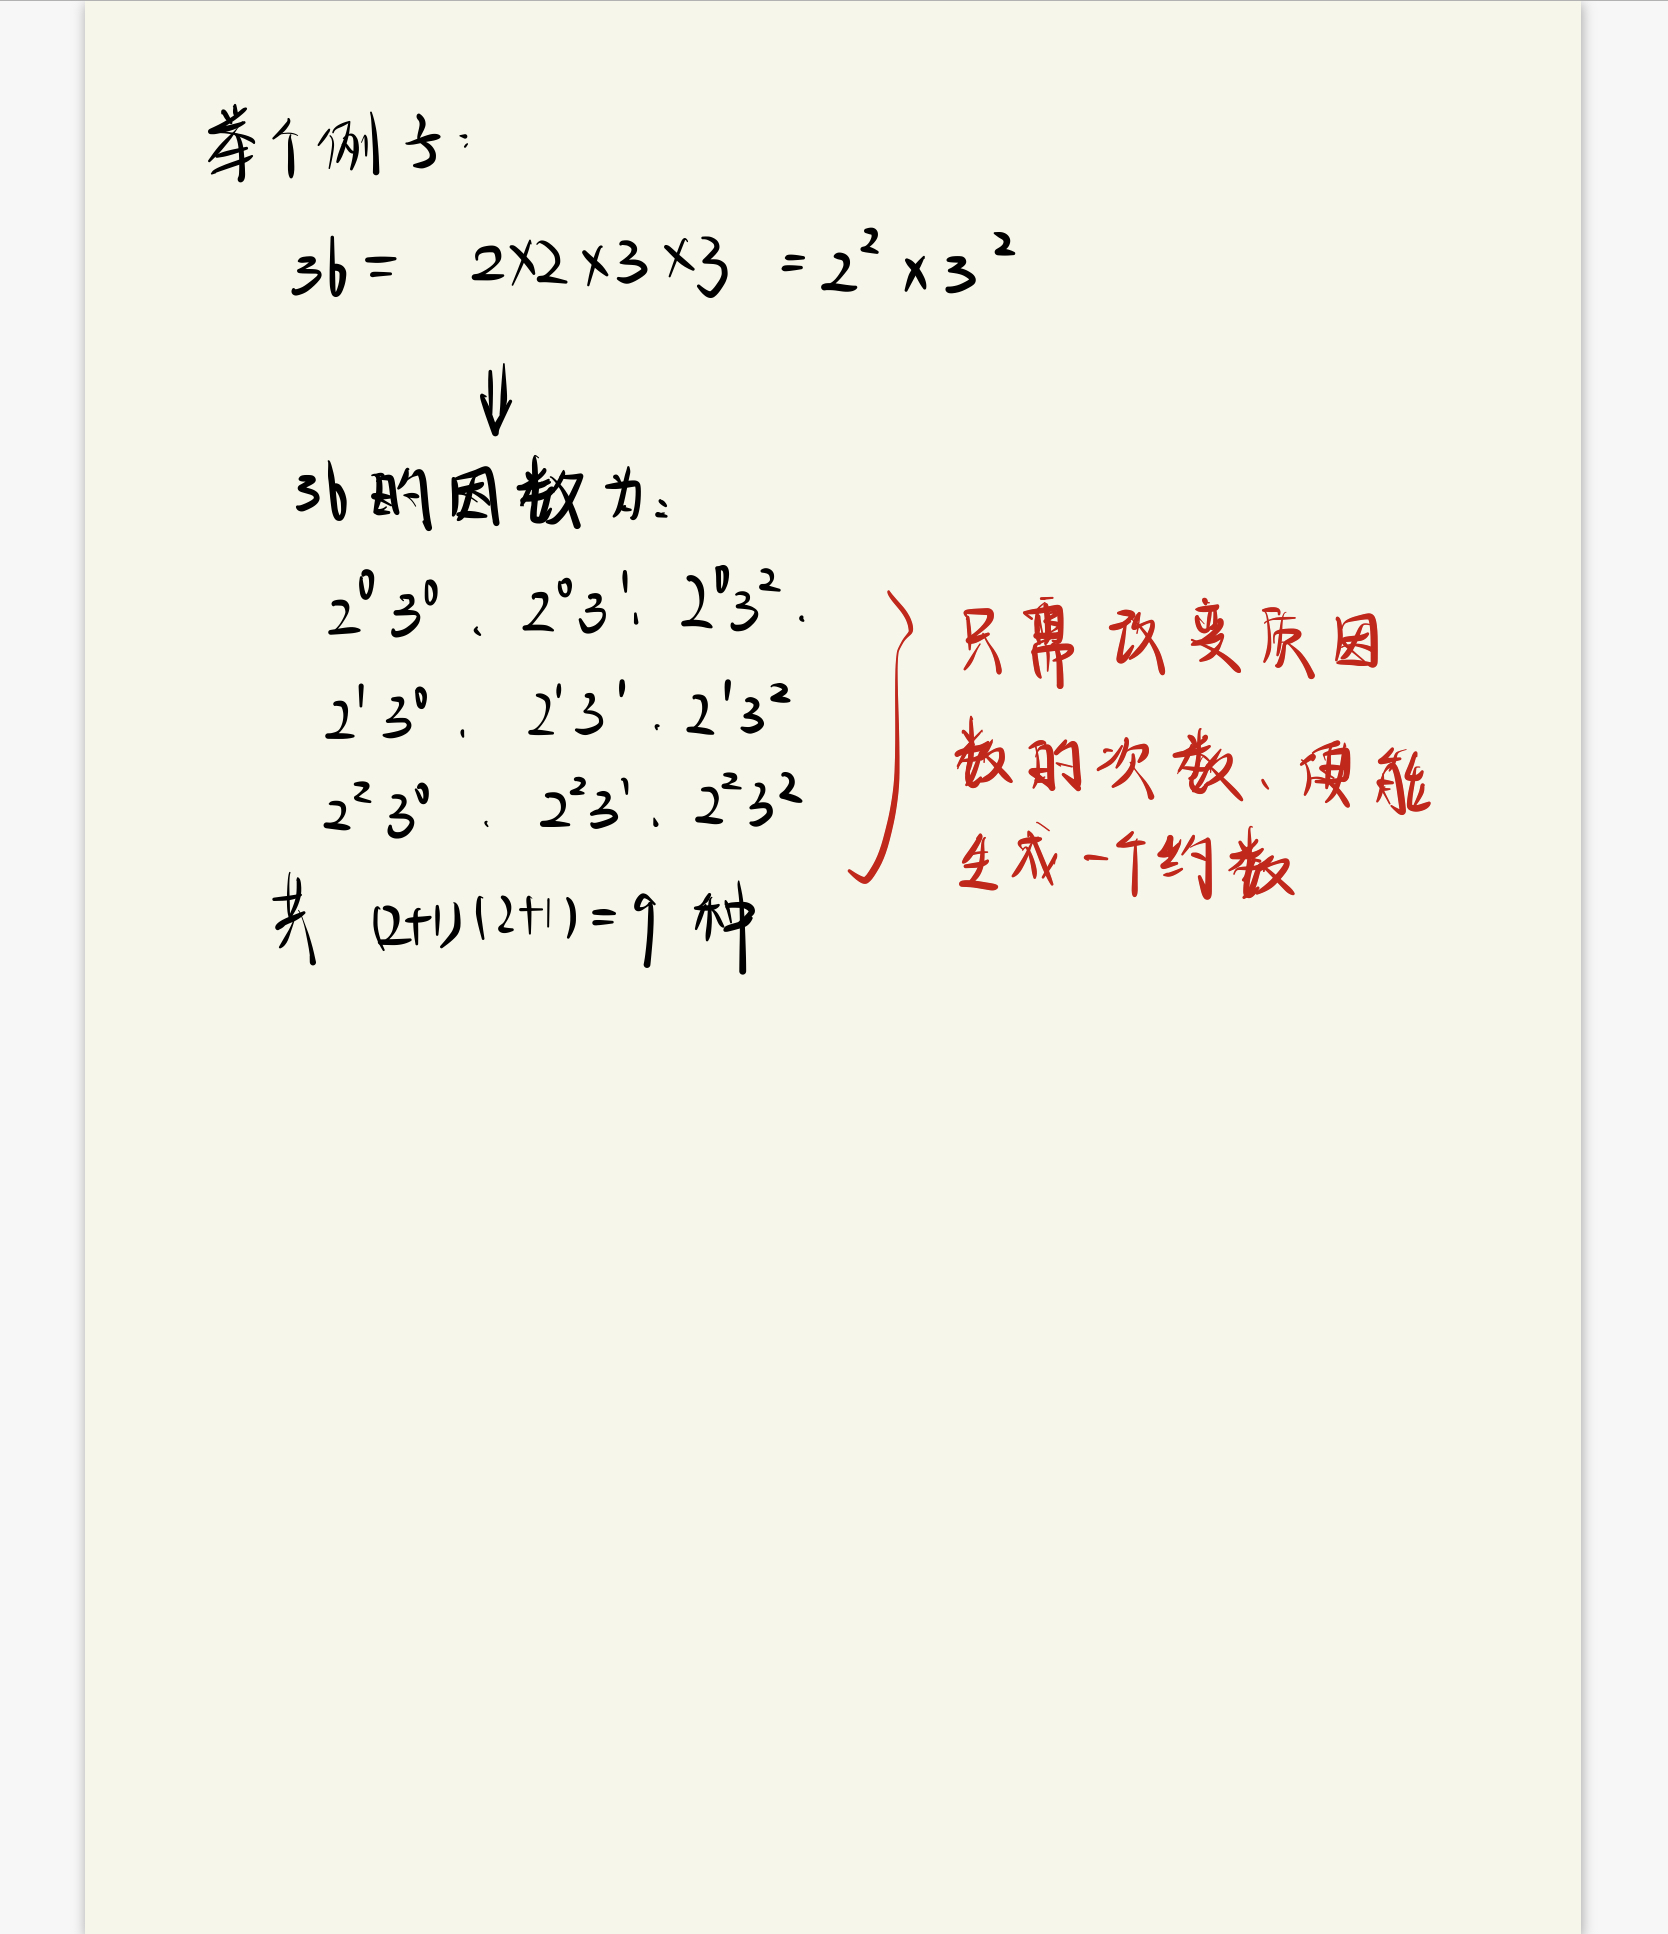 举个例子:
36 = 2×2×3×3 = 2² × 3²
⇓
36的因数为:
2⁰3⁰、2⁰3¹、2⁰3²、
2¹3⁰、2¹3¹、2¹3²
2²3⁰、2²3¹、2²3²
共 (2+1)(2+1) = 9 种
只需改变质因
数的次数、便能
生成一个约数